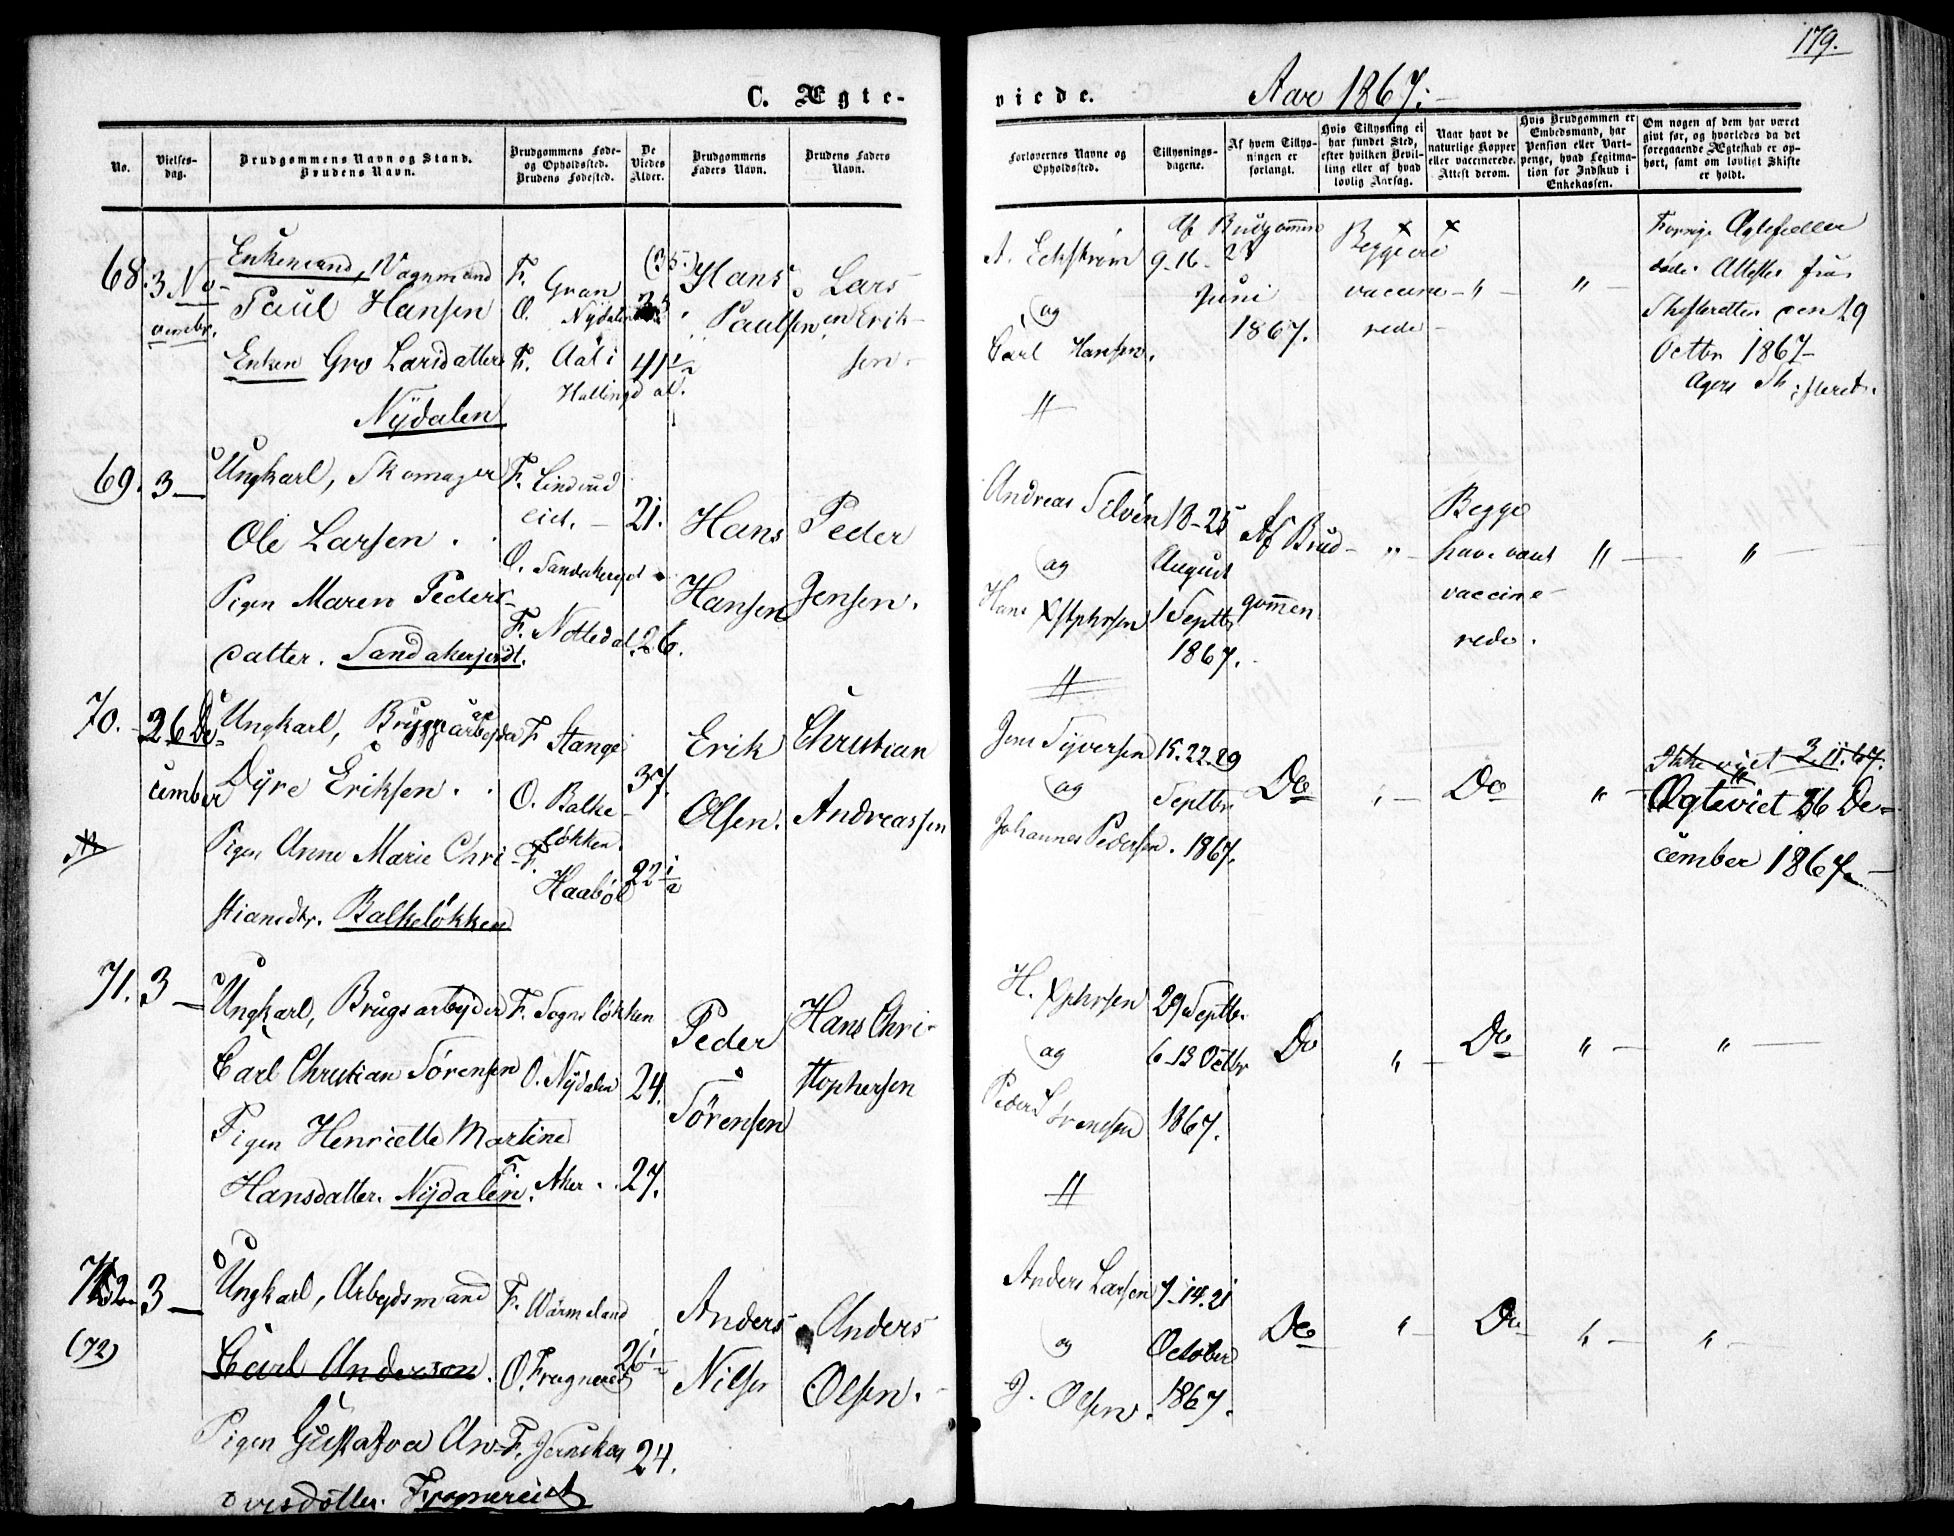 179.
C. Ægte-
viede.
Aar 1867.
No.
Vielses-
dag.
Brudgommens Navn og Stand.
Brudens Navn.
Brudgommens Føde-
og Opholdssted.
Brudens Fødested.
De
Viedes
Alder.
Brudgommens
Faders Navn.
Brudens Faders
Navn.
Forlovernes Navne og
Opholdssted.
Tillysnings-
dagene.
Af hvem Tillys-
ningen er
forlangt.
Hvis Tillysning ei
har fundet Sted,
efter hvilken Bevil-
ling eller af hvad
lovlig Aarsag.
Naar havt de
naturlige Kopper
eller vaccinerede.
Attest derom.
Hvis Brudgommen er
Embedsmand, har
Pension eller Vart-
penge, hvad Legitima-
tion for Indskud i
Enkekassen.
Om nogen af dem har været
givt før, og hvorledes da det
foregaaende Ægteskab er op-
hørt, samt om lovligt Skifte
er holdt.
68. 3 No-
vembr.
Enkemand, Vognmand
Paul Hansen
Enken Gro Larsdatter
Nydalen
F. Gran
O. Nydalen
F. Aal i
Hallingdal.
(35.)
41 1/2
Hans
Paulsen
Lars
Erik-
sen.
A. Eckstrøm
og
Carl Hansen.
9-16-23
Juni
1867.
Af Brudgommen
Begge ere
vaccine-
rede
Forrige Ægtefæller
døde. Attester fra
Skifteretten den 29
Octbr 1867
Agers Skifteret.
69. 3 —
Ungkarl, Skomager
Ole Larsen.
Pigen Maren Peders-
datter. Sandakerejdt.
F.
O. Sandakerejdt
F. Nittedal.
21.
26.
Hans
Hansen
Peder
Jensen.
Andreas Silvén
og
Hans Xstphrsen
18-25
August
1 Septbr
1867.
Af Brud-
gommen
Begge
have vært
vaccine-
rede.
70. 26 De-
cember
Ungkarl, Bryggearbejder
Dyre Eriksen.
Pigen Anne Marie Chri-
stiansdtr. Balkeløkken
F. Stange
O. Balke-
løkken.
F.
Haabøl
37.
22 1/2
Erik
Olsen.
Christian
Andreassen
Jens Syversen
og
Johannes Pedersen.
15.22.29
Septbr
1867.
Do
Do
Ikke viet 3.11.67.
Ægteviet 26 De-
cember 1867.
71. 3 —
Ungkarl, Brugsarbejder
Carl Christian Sörensen
Pigen Henriette Martine
Hansdatter. Nydalen.
F. Sognsløkken
O. Nydalen
F. Aker.
24.
27.
Peder
Sörensen
Hans Chri-
stophersen
H. Xphrsen
og
Peder Sörensen
29 Septbr.
6-13 Octbr
1867.
Do
Do
72 3 —
(72)
Ungkarl, Arbejdsmand
Carl Anderson.
Pigen Gustafva An-
dersdotter. Frognereiet
F. Wärmeland
O. Frognereiet
F. Jernskog
26 1/2
24.
Anders
Nilsen
Anders
Olsen.
Anders Larsen
og
J. Olsen.
7-14.21
October
1867.
Do
Do